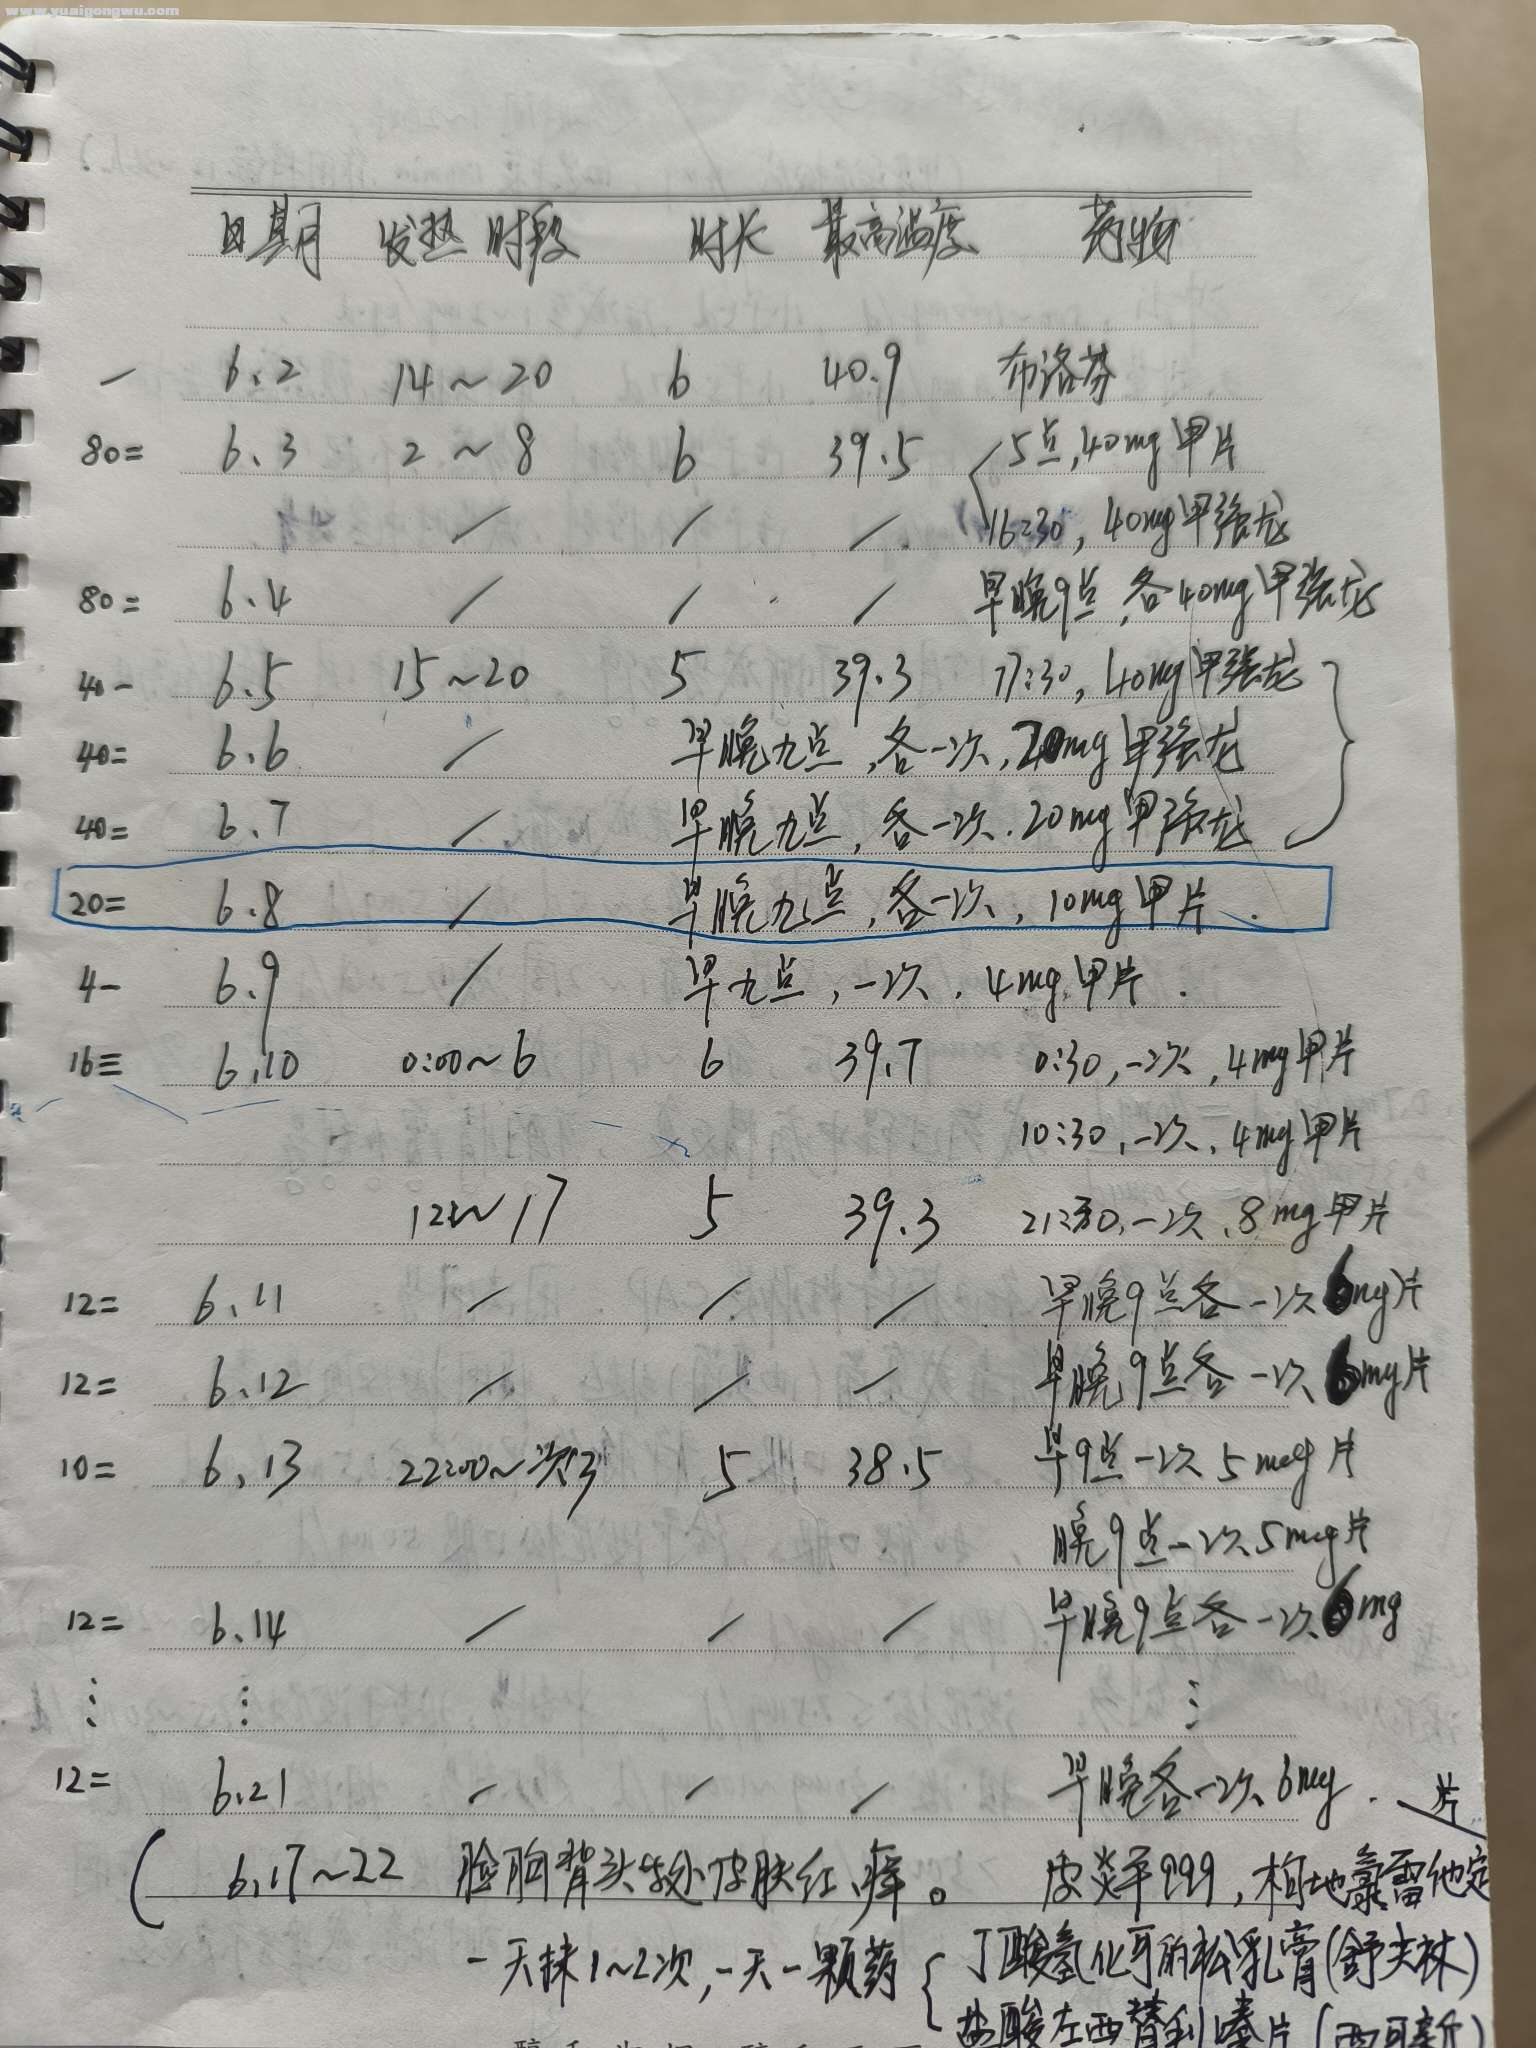 www.yuaigongwu.com
日期 发热时段 时长 最高温度 药物
— 6.2 14～20 6 40.9 布洛芬
80= 6.3 2～8 6 39.5 5点,40mg甲片
/ / / 16:30,40mg甲强龙
80= 6.4 / / / 早晚9点,各40mg甲强龙
40- 6.5 15～20 5 39.3 17:30,40mg甲强龙
40= 6.6 / 早晚九点,各一次,20mg甲强龙
40= 6.7 / 早晚九点,各一次.20mg甲强龙
20= 6.8 / 早晚九点,各一次,10mg甲片.
4- 6.9 / 早九点,一次,4mg甲片.
16≡ 6.10 0:00～6 6 39.7 0:30,一次,4mg甲片
10:30,一次,4mg甲片
12～17 5 39.3 21:30,一次,8mg甲片
12= 6.11 / / / 早晚9点各一次6mg片
12= 6.12 / / / 早晚9点各一次6mg片
10= 6.13 22:00～次3 5 38.5 早9点一次5mg片
晚9点一次5mg片
12= 6.14 / / / 早晚9点各一次6mg
⋮ ⋮ ⋮
12= 6.21 / / / 早晚各一次6mg.片
(6.17～22 脸胸背头皮肤红,痒。 皮炎平999,枸地氯雷他定
一天抹1～2次,一天一颗药{丁酸氢化可的松乳膏(舒夫林)
盐酸左西替利嗪片(西可新)